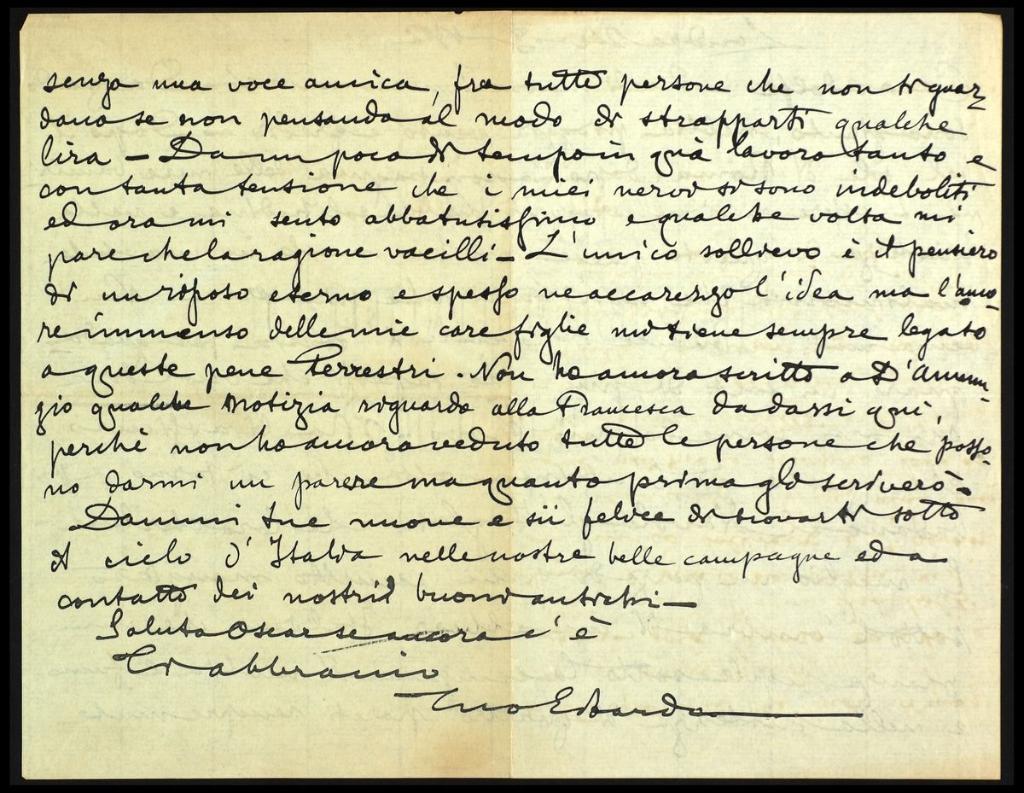 senza una voce amica, fra tutte persone che non ti guar-
dano se non pensando al modo di strapparti qualche
lira – Da un poco di tempo in quà lavoro tanto e
con tanta tensione che i miei nervi si sono indeboliti
ed ora mi sento abbatutissimo e qualche volta mi
pare che la ragione vacilli – L'unico sollievo è il pensiero
di un riposo eterno e spesso ne accarezzo l'idea ma l'amo-
re immenso delle mie care figlie mi tiene sempre legato
a queste pene Terrestri. Non ho ancora scritto a D'Annun-
zio qualche notizia riguardo alla Francesca da darsi qui,
perchè non ho ancora veduto tutte le persone che posso-
no darmi un parere ma quanto prima gli scriverò –
Dammi tue nuove e sii felice di trovarti sotto
il cielo d'Italia nelle nostre belle campagne ed a
contatto dei nostri buoni antichi –
Saluta Oscar se ancora c'è
Ti abbraccio
Tuo Edoardo